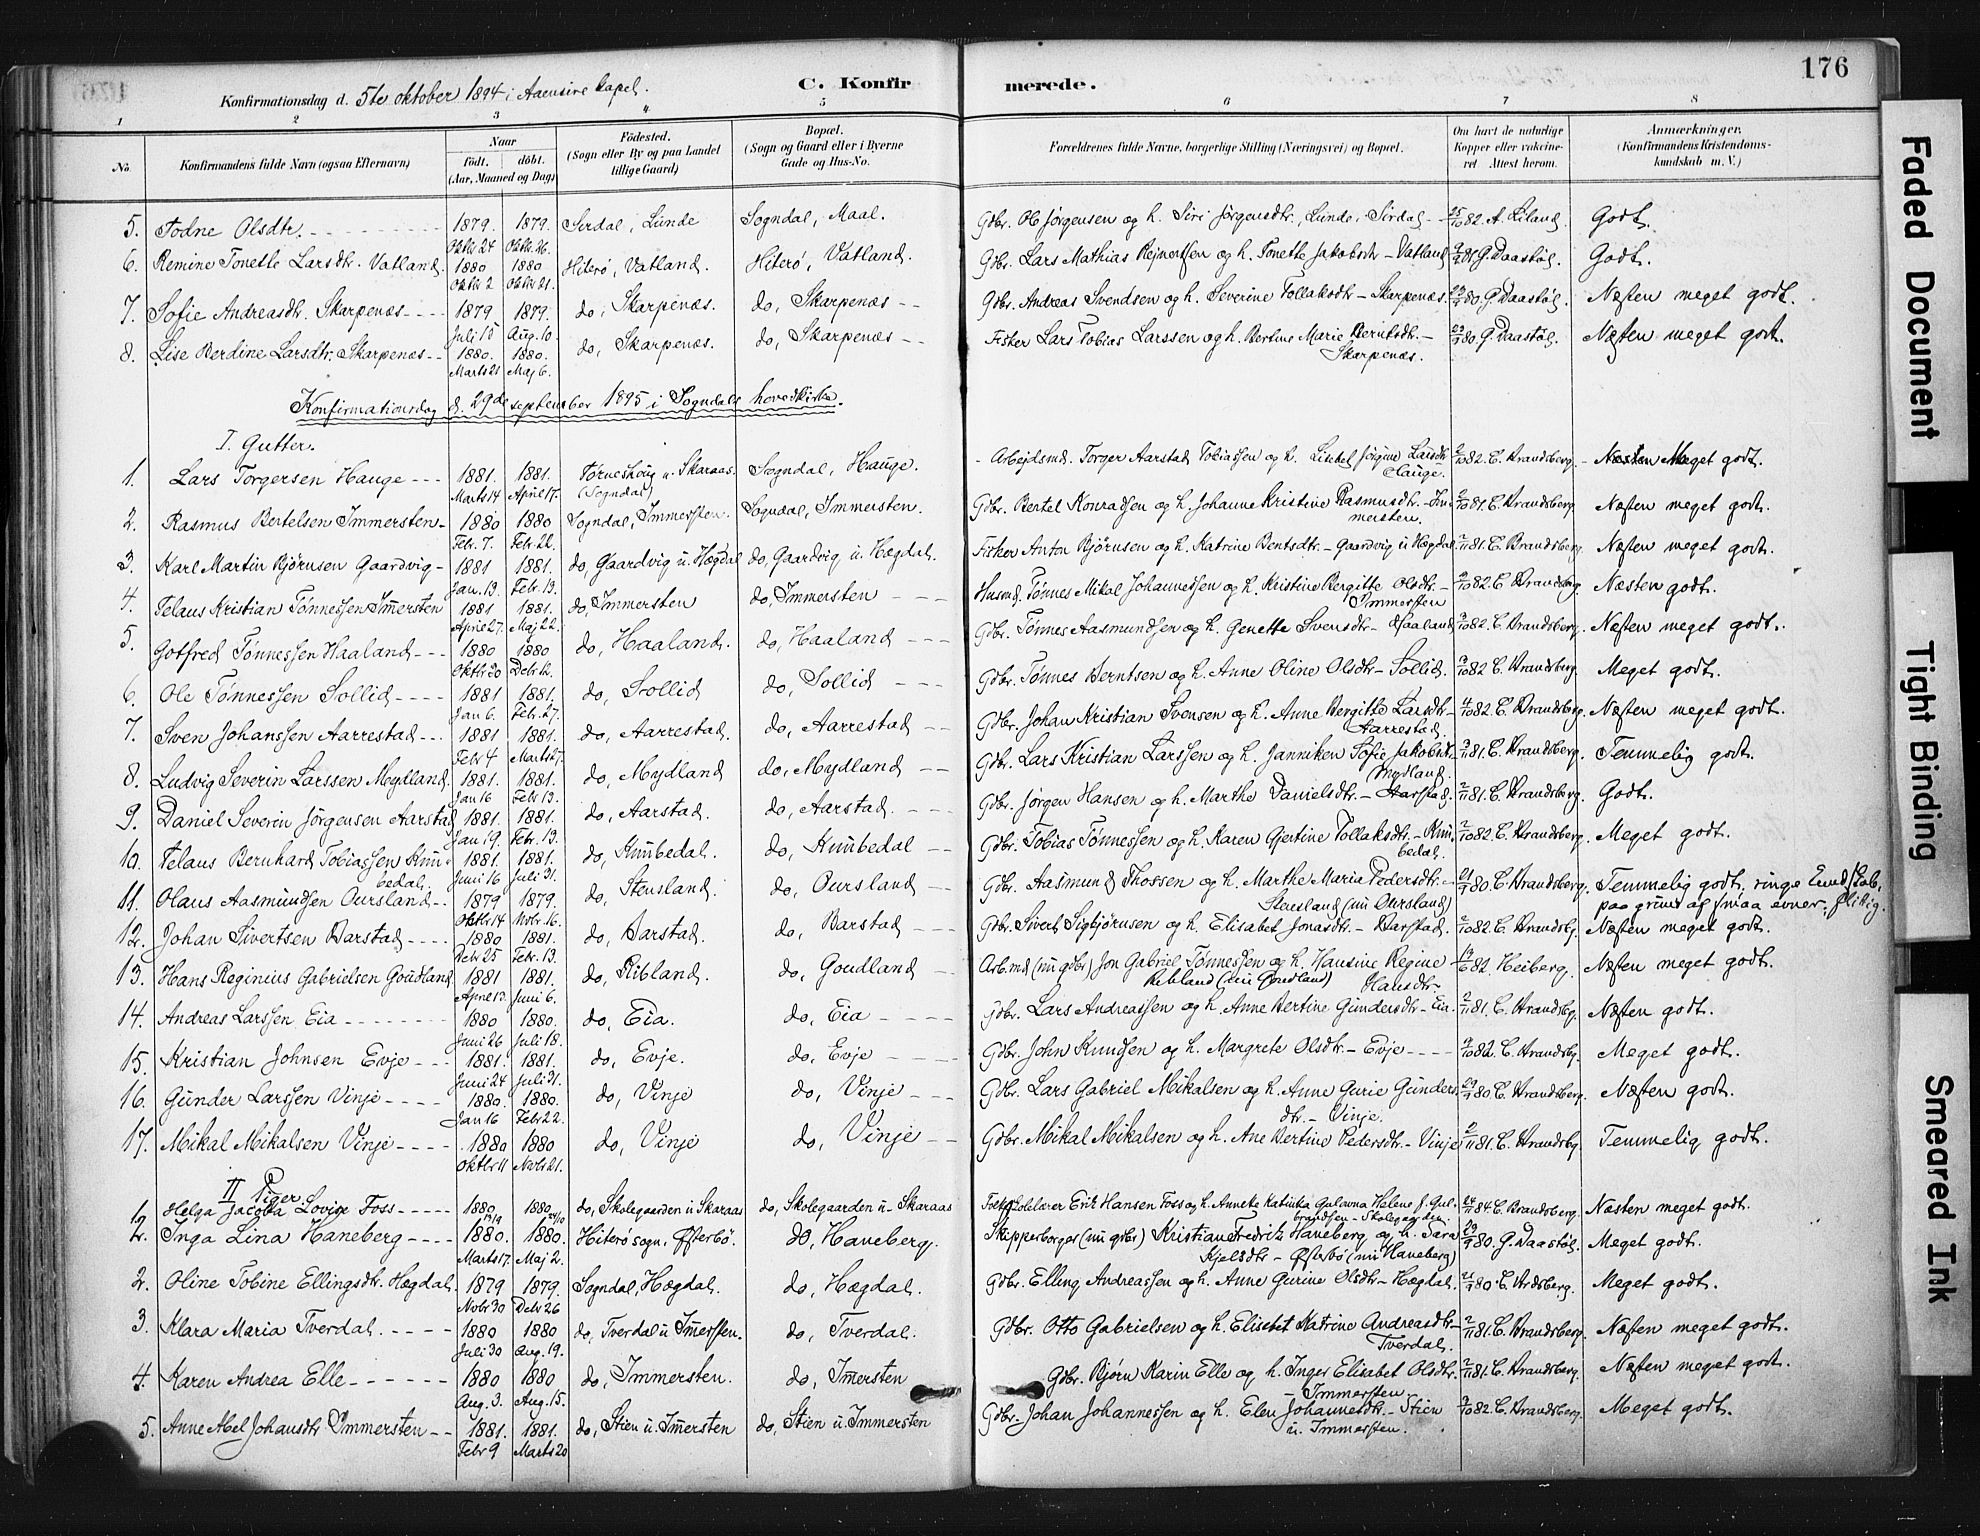 176
C. Konfirmerede.
Konfirmationsdag d. 5te oktober 1894 i Aaensire kapel.
1 2 3 4 5 6 7 8
No. Konfirmandens fulde Navn (ogsaa Efternavn) Naar födt. döbt. (Aar, Maaned og Dag) Födested. (Sogn eller By og paa Landet tillige Gaard) Bopæl. (Sogn og Gaard eller i Byerne Gade og Hus-No. Forældrenes fulde Navne, borgerlige Stilling (Næringsvei) og Bopæl. Om havt de naturlige Kopper eller vaccineret Attest herom. Anmærkninger. (Konfirmandens Kristendomskundskab m. V.)
5. Todne Olsdtr. 1879. Oktbr 24 1879. Oktbr. 26. Sirdal, Lunde Sogndal, Maal. Gdbr. Ole Jørgensen og h. Siri Jørgensdtr, Lunde, Sirdal 25/10 82. A. Liland. Godt.
6. Remine Tonette Larsdtr. Vatland. 1880 Oktbr 2 1880 Oktbr. 21. Hiterö, Vatland. Hiterö, Vatland. Gdbr. Lars Mathias Rejnertsen og h. Tonette Jakobsdtr - Vatland G. Daastöl. Godt.
7. Sofie Andreasdtr. Skarpenæs 1879 Juli 15 1879. Aug. 10. do, Skarpenæs. do, Skarpenæs Gdbr. Andreas Svendsen og h. Severine Tollaksdtr - Skarpenæs. 29/9 80. G. Daastöl. Næsten meget godt.
8. Lise Berdine Larsdtr. Skarpenæs 1880. Marts 21 1880. Maj 6. do, Skarpenæs. do, Skarpenæs Fisker Lars Tobias Larssen og h. Bertine Marie Berntsdtr. - Skarpenæs. 29/9 80. G. Daastöl. Næsten meget godt.
Konfirmationsdag d. 29de september 1895 i Sogndals hovedkirke.
I. Gutter.
1. Lars Torgersen Hauge 1881. Marts 14 1881. April 17. Törneshoug u. Skaraas. (Sogndal) Sogndal, Hauge. Arbejdsmd. Torger Aarstad Tobiassen og h. Jörgine Larsdtr Hauge. 2/10 82. C. Brandsberg. Næsten Meget godt.
2. Rasmus Bertelsen Immersten 1880 Febr. 7. 1880 Febr. 22. Sogndal, Immersten. Sogndal, Immersten. Gdbr. Bertel Konradsen og h. Johanne Kristine Rasmusdtr. - Immersten. C. Brandsberg Næsten meget godt.
3. Karl Martin Björnsen Gaardvig 1881 Jan. 13. 1881. Febr. 13. do, Gaardvig u. Hægdal do, Gaardvig u. Hægdal. Fisker Anton Björnsen og h. Katrine Bentsdtr. - Gaardvig u. Hægdal 2/11 81. C. Brandsberg. Næsten meget godt.
4. Telaus Kristian Tönnessen Im̄ersten 1881 April 27. 1881. Maj 22. do, Immersten do, Immersten Husmd. Tönnes Mikal Johannessen og h. Kristine Bergitte Olsdtr. - Immersten C. Brandsberg. Næsten godt.
5. Gotfred Tönnessen Haaland 1880 Oktbr 20 1880 Debr 12. do, Haaland. do, Haaland Gdbr. Tönnes Aasmundsen og h. Genette Svensdtr - Haaland C. Brandsberg. Næsten meget godt.
6. Ole Tönnessen Sollid 1881 Jan 6. 1881. Febr. 27. do, Sollid do, Sollid Gdbr. Tönnes Berntsen og h. Anne Oline Olsdtr - Sollid. C. Brandsberg. Meget godt.
7. Sven Johanssen Aarrestad 1881 Febr 4 1881. Marts 27. do, Aarrestad. do, Aarrestad Gdbr. Johan Kristian Svensen og h. Anne Bergitte Larsdtr - Aarrestad. C. Brandsberg. Næsten meget godt.
8. Ludvig Severin Larssen Mydland. 1881. Jan 16 1881. Febr 13. do, Mydland do, Mydland Gdbr. Lars Kristian Larssen og h. Janniken Sofie Jakobsdtr. Mydland. C. Brandsberg. Temmelig godt.
9. Daniel Severin Jörgensen Aarstad 1881. Jan 19. 1881. Febr. 13. do, Aarstad. do, Aarstad. Gdbr. Jörgen Hansen og h. Marthe Danielsdtr. - Aarstad. 2/11 81. C. Brandsberg. Godt.
10. Telaus Bernhard Tobiassen Knubedal. 1881. Juni 16 1881. Juli 31. do, Knubedal. do, Knubedal Gdbr. Tobias Tönnessen og h. Karen Gjertine Tollaksdtr. - Knubedal. 2/10 82. C. Brandsberg. Meget godt.
11. Olaus Aasmundsen Oursland 1879 Oktbr 14 1879. Novbr. 16. do, Stensland. do, Oursland Gdbr. Aasmund Thossen og h. Marthe Maria Pedersdtr. - Stensland (nu Oursland) 21/9 80. C. Brandsberg. Temmelig godt, ringe kundskab, paa grund af smaa evner, flittig.
12. Johan Sivertsen Barstad 1880 Debr 25 1881. Febr. 13. do, Barstad. do, Barstad Gdbr. Sivert Sigbjörnsen og h. Elisabet Jonasdtr. - Barstad. 2/10 82. C. Brandsbg. Næsten meget godt.
13. Hans Reginius Gabrielsen Goudland 1881 April 13. 1881. Juni 6. do, Ribland. do, Goudland Arb.md (nu gdbr) Jon Gabriel Tönnessen og h. Hansine Regine Hansdtr - Ribland (nu Goudland) Heiberg. Næsten meget godt.
14. Andreas Larssen Eia 1880 Juni 26 1880. Juli 18. do, Eia. do, Eia Gdbr. Lars Andreassen og h. Anne Bertine Gundersdtr - Eia. 2/11 81. C. Brandsbg. Næsten godt.
15. Kristian Johnsen Evje 1881. Juni 24 1881. Juli 31. do, Evje. do, Evje Gdbr. John Knudsen og h. Margrete Olsdtr. - Evje C. Brandsbg. Meget godt.
16. Gunder Larssen Vinje 1880. Jan 16 1880. Febr 22. do, Vinje do, Vinje Gdbr. Lars Gabriel Mikalsen og h. Anne Gurie Gundersdtr. - Vinje. C. Brandsbg. Næsten godt.
17. Mikal Mikalsen Vinje 1880 Oktbr 11 1880 Novbr 21. do, Vinje do, Vinje Gdbr. Mikal Mikalsen og h. Ane Bertine Pedersdtr. - Vinje 2/11 81. C. Brandsbg. Temmelig godt.
II Piger
1. Helga Jacoba Lovise Foss 1880 1880 24/10 do, Skolegaarden u. Skaraas do, Skolegaarden u. Skaraas Folkeskolelærer Erik Hansen Foss og h. Annette Katinka Gulovna Helene f. Gulbrandsen - Skolegaarden. C. Brandsberg. Næsten meget godt.
2. Inga Lina Haneberg 1880. Marts 17. 1880. Maj 2. Hiterö sogn, Østerbö. do, Haneberg. Skipperborger (nu gdbr) Kristian Fredrik Haneberg og h. Sara Kjelsdtr - Østerbö (nu Haneberg) 29/9 80. G. Daastöl. Meget godt.
2. Oline Tobine Ellingsdtr. Hægdal. 1879 Novbr 30 1879. Debr 26 Sogndal, Hægdal. do, Hægdal. Gdbr. Elling Andreassen og h. Anne Gurine Olsdtr - Hægdal. 21/9 80 C. Brdsberg. Meget godt.
3. Klara Maria Tverdal. 1880 Juli 30 1880 Aug. 19. do, Tverdal u Im̄ersten. do, Tverdal. Gdbr. Otto Gabrielsen og h. Elisebet Katrine Andreasdtr - Tverdal. 2/11 81. C. Brandsberg. Næsten meget godt.
4. Karen Andrea Elle 1880 Aug. 3. 1880 Aug. 15. do, Immersten. do, Im̄ersten Gdbr. Björn Karin Elle og h. Inger Elisabet Olsdtr. - Immersten. 2/11 81. C. Brandsberg. Næsten meget godt.
5. Anne Abel Johansdtr Immersten 1881. Febr 9 1881. Marts 20 do, Stien u. Im̄ersten do, Stien u. Immersten Gdbr. Johan Johannessen og h. Elen Johannesdtr. - Stien u. Immersten. C. Brandsberg. Meget godt.
Faded Document
Tight Binding
Smeared Ink